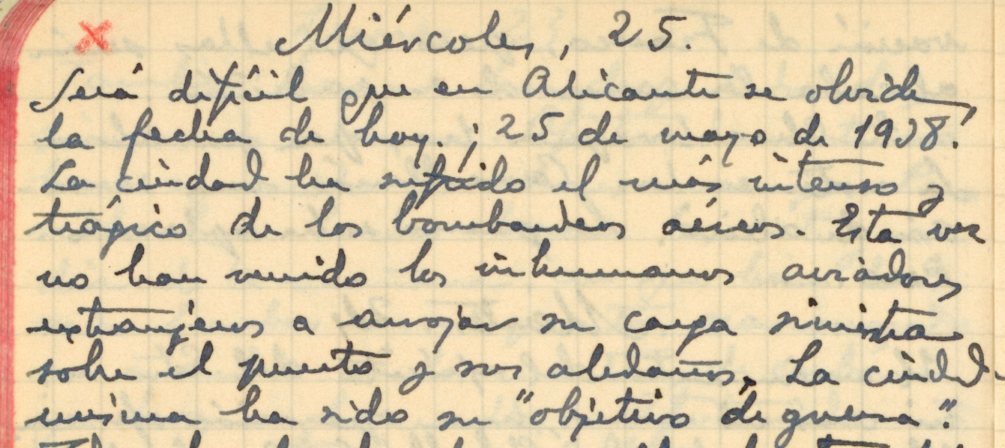 Miércoles, 25.
Será difícil que en Alicante se olvide,
la fecha de hoy. ¡ 25 de mayo de 1938!
La ciudad ha sufrido el más intenso y
trágico de los bombardeos aéreos. Esta vez
no han venido los inhumanos aviadores
extranjeros a arrojar su carga siniestra
sobre el puerto y sus aledaños. La ciudad
misma ha sido su "objetivo de guerra".